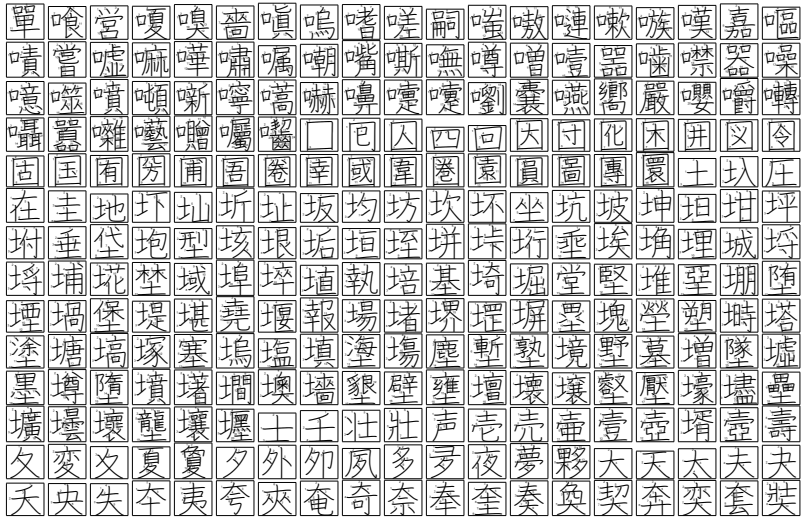 單喰営嗄嗅嗇嗔嗚嗜嗟嗣嗤嗷嗹嗽嗾嘆嘉嘔
嘖嘗嘘嘛嘩嘯嘱嘲嘴嘶嘸噂噌噎噐噛噤器噪
噫噬噴噸噺嚀嚆嚇嚊嚏嚔嚠嚢嚥嚮嚴嚶嚼囀
囁囂囃囈囎囑囓囗囘囚四回因団囮困囲図囹
固国囿圀圃圄圈圉國圍圏園圓圖團圜土圦圧
在圭地圷圸圻址坂均坊坎坏坐坑坡坤坦坩坪
坿垂垈垉型垓垠垢垣垤垪垰垳埀埃埆埋城埒
埓埔埖埜域埠埣埴執培基埼堀堂堅堆堊堋堕
堙堝堡堤堪堯堰報場堵堺堽塀塁塊塋塑塒塔
塗塘塙塚塞塢塩填塰塲塵塹塾境墅墓増墜墟
墨墫墮墳墸墹墺墻墾壁壅壇壊壌壑壓壕壗壘
壙壜壞壟壤壥士壬壮壯声壱売壷壹壺壻壼壽
夂変夊夏夐夕外夘夙多夛夜夢夥大天太夫夬
夭央失夲夷夸夾奄奇奈奉奎奏奐契奔奕套奘